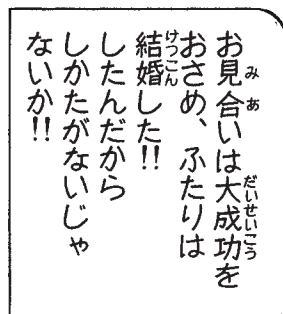 お見合いは大成功を
おさめ、ふたりは
結婚した!!
したんだから
しかたがないじゃ
ないか!!